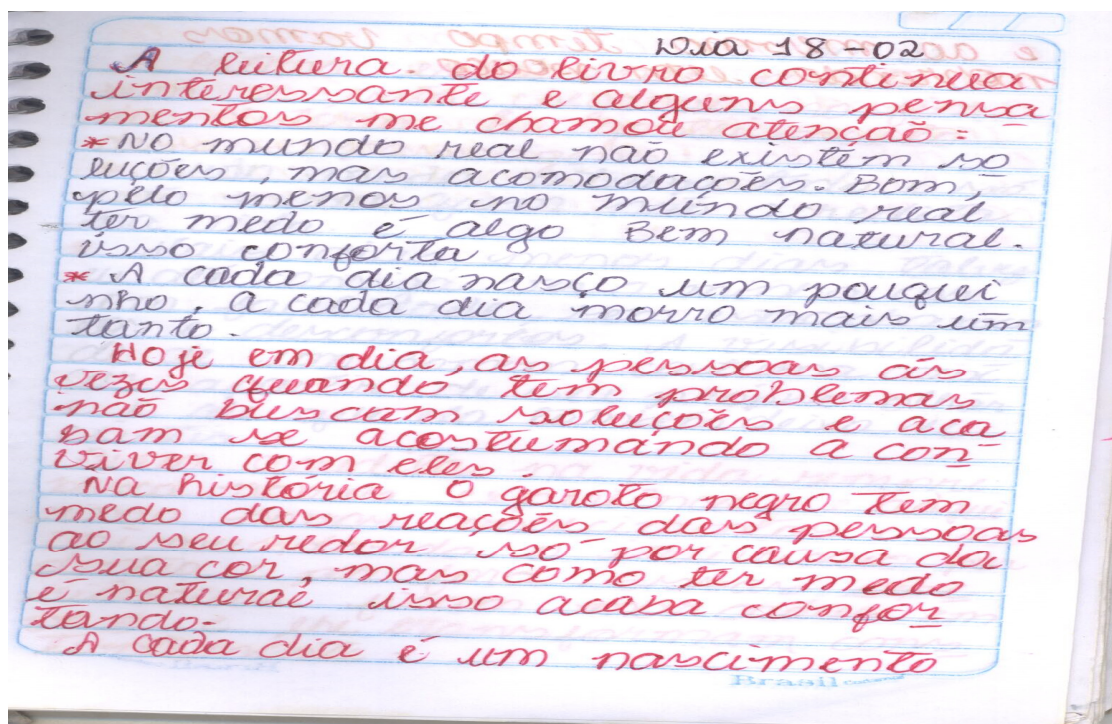 Dia 18-02
A leitura do livro continua
interessante e alguns pensa
mentos me chamou atenção:
* No mundo real não existem so
luções, mas acomodações. Bom,
pelo menos no mundo real
ter medo é algo Bem natural.
isso conforta
* A cada dia nasço um pouqui
nho, a cada dia morro mais um
tanto.
Hoje em dia, as pessoas ás
vezes quando tem problemas
não buscam soluções e aca
bam se acostumando a con-
viver com eles.
Na história o garoto negro tem
medo das reações das pessoas
ao seu redor só por causa da
sua cor, mas como ter medo
é natural isso acaba confor
tando.
A cada dia é um nascimento
Brasil